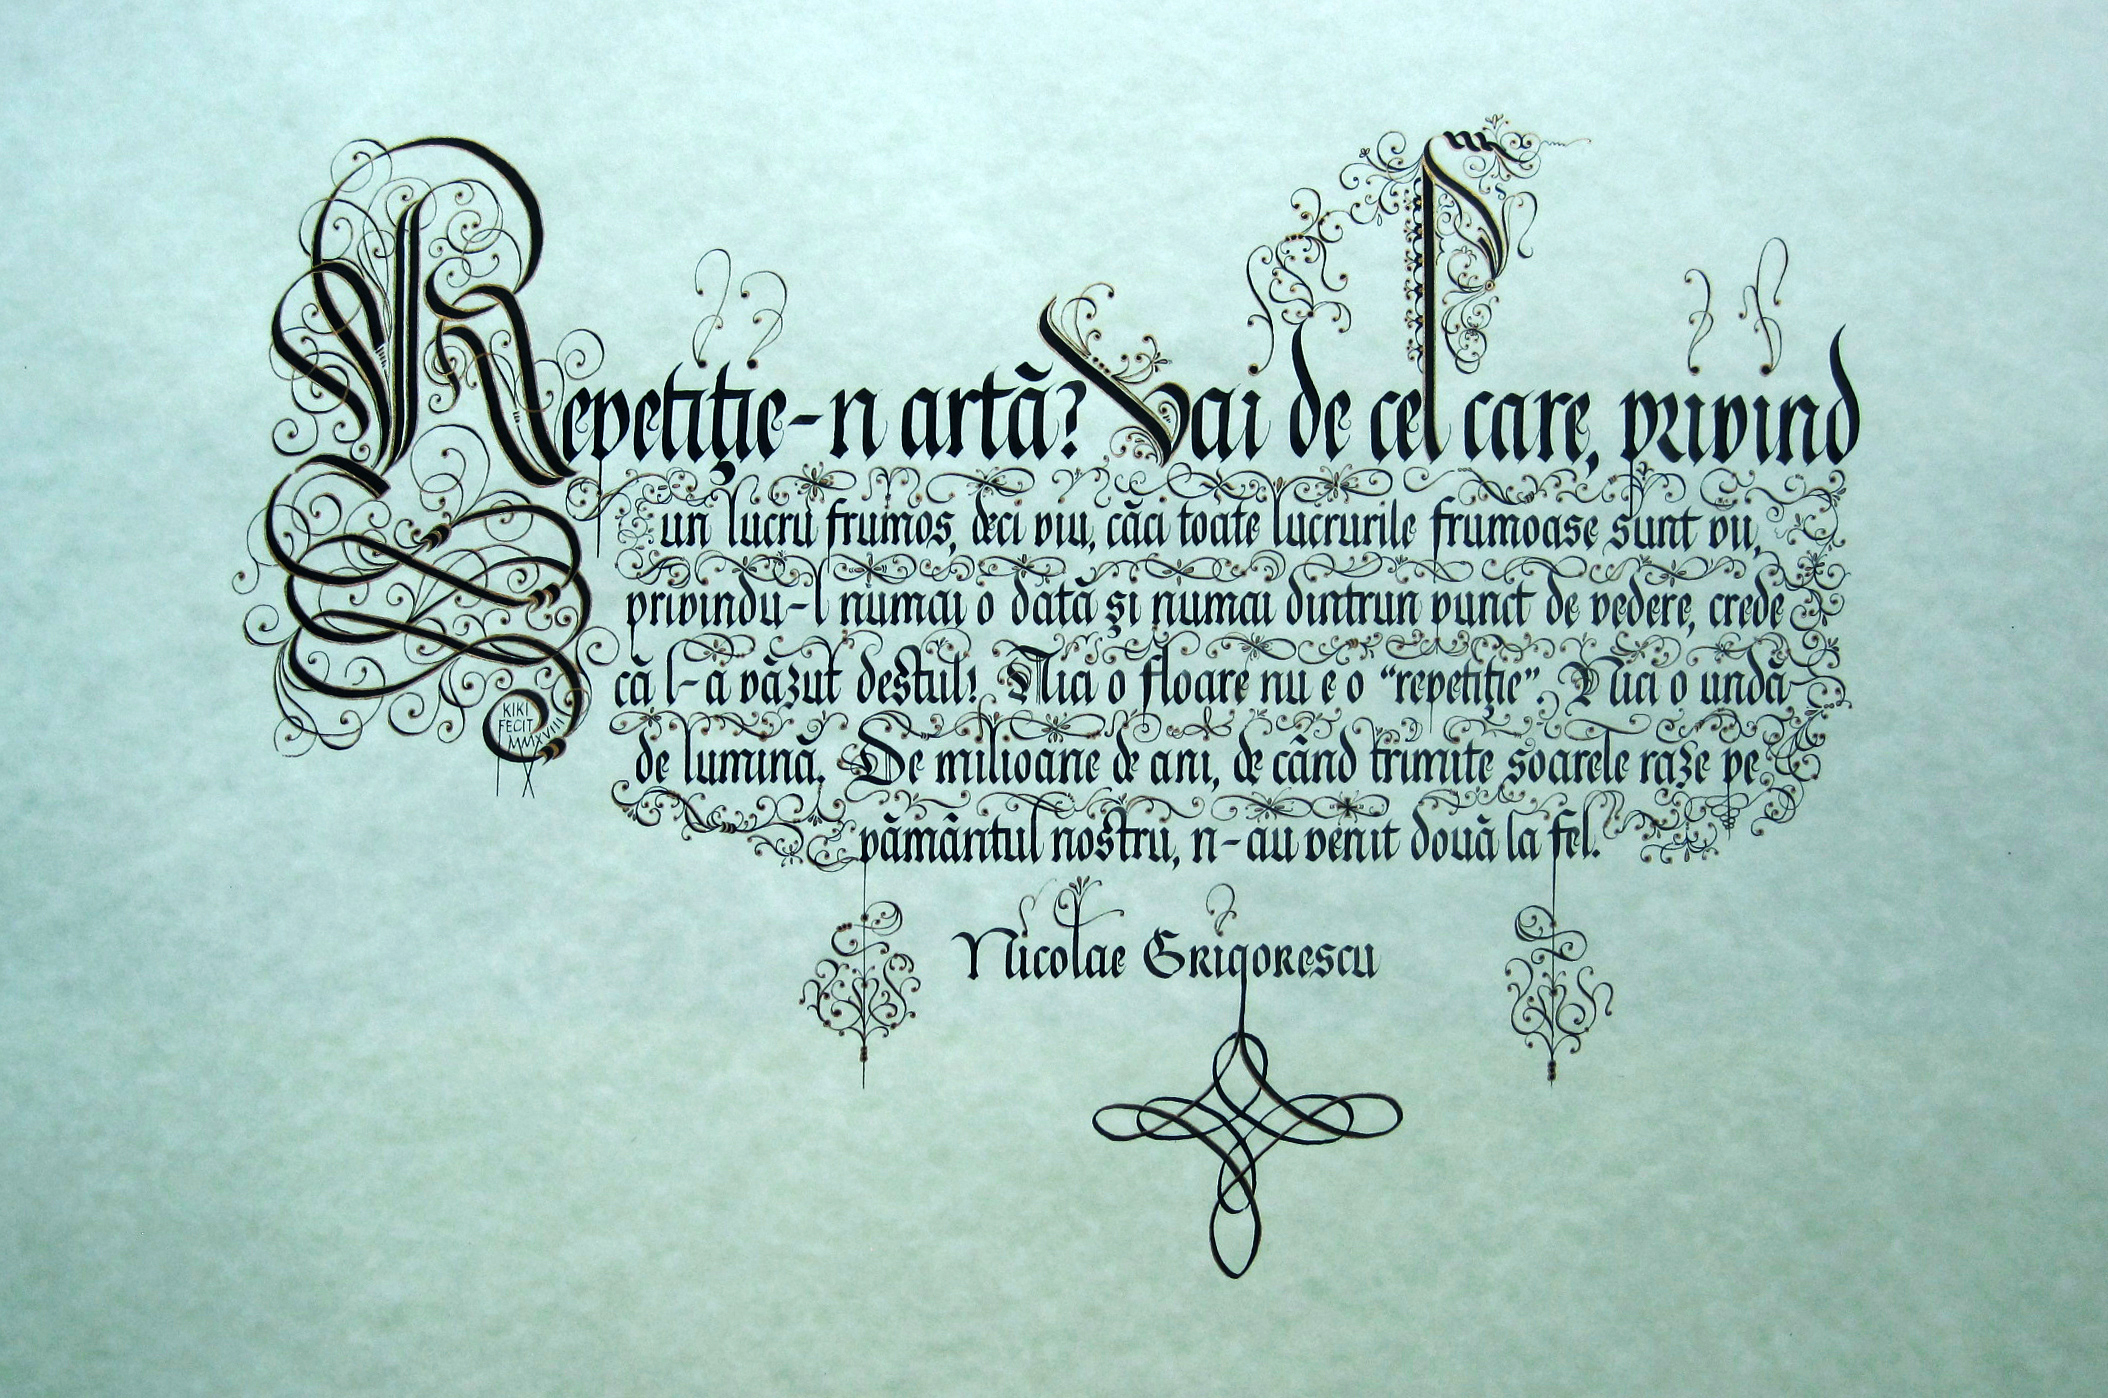 Repetiție-n artă? Vai de cel care, privind
un lucru frumos, deci viu, căci toate lucrurile frumoase sunt vii,
privindu-l numai o dată și numai dintrun punct de vedere, crede
că l-a văzut destul! Nici o floare nu e o “repetiție”. Nici o undă
de lumină. De milioane de ani, de când trimite soarele raze pe
pământul nostru, n-au venit două la fel.
Nicolae Grigorescu
KIKI
FECIT
MMXVIII